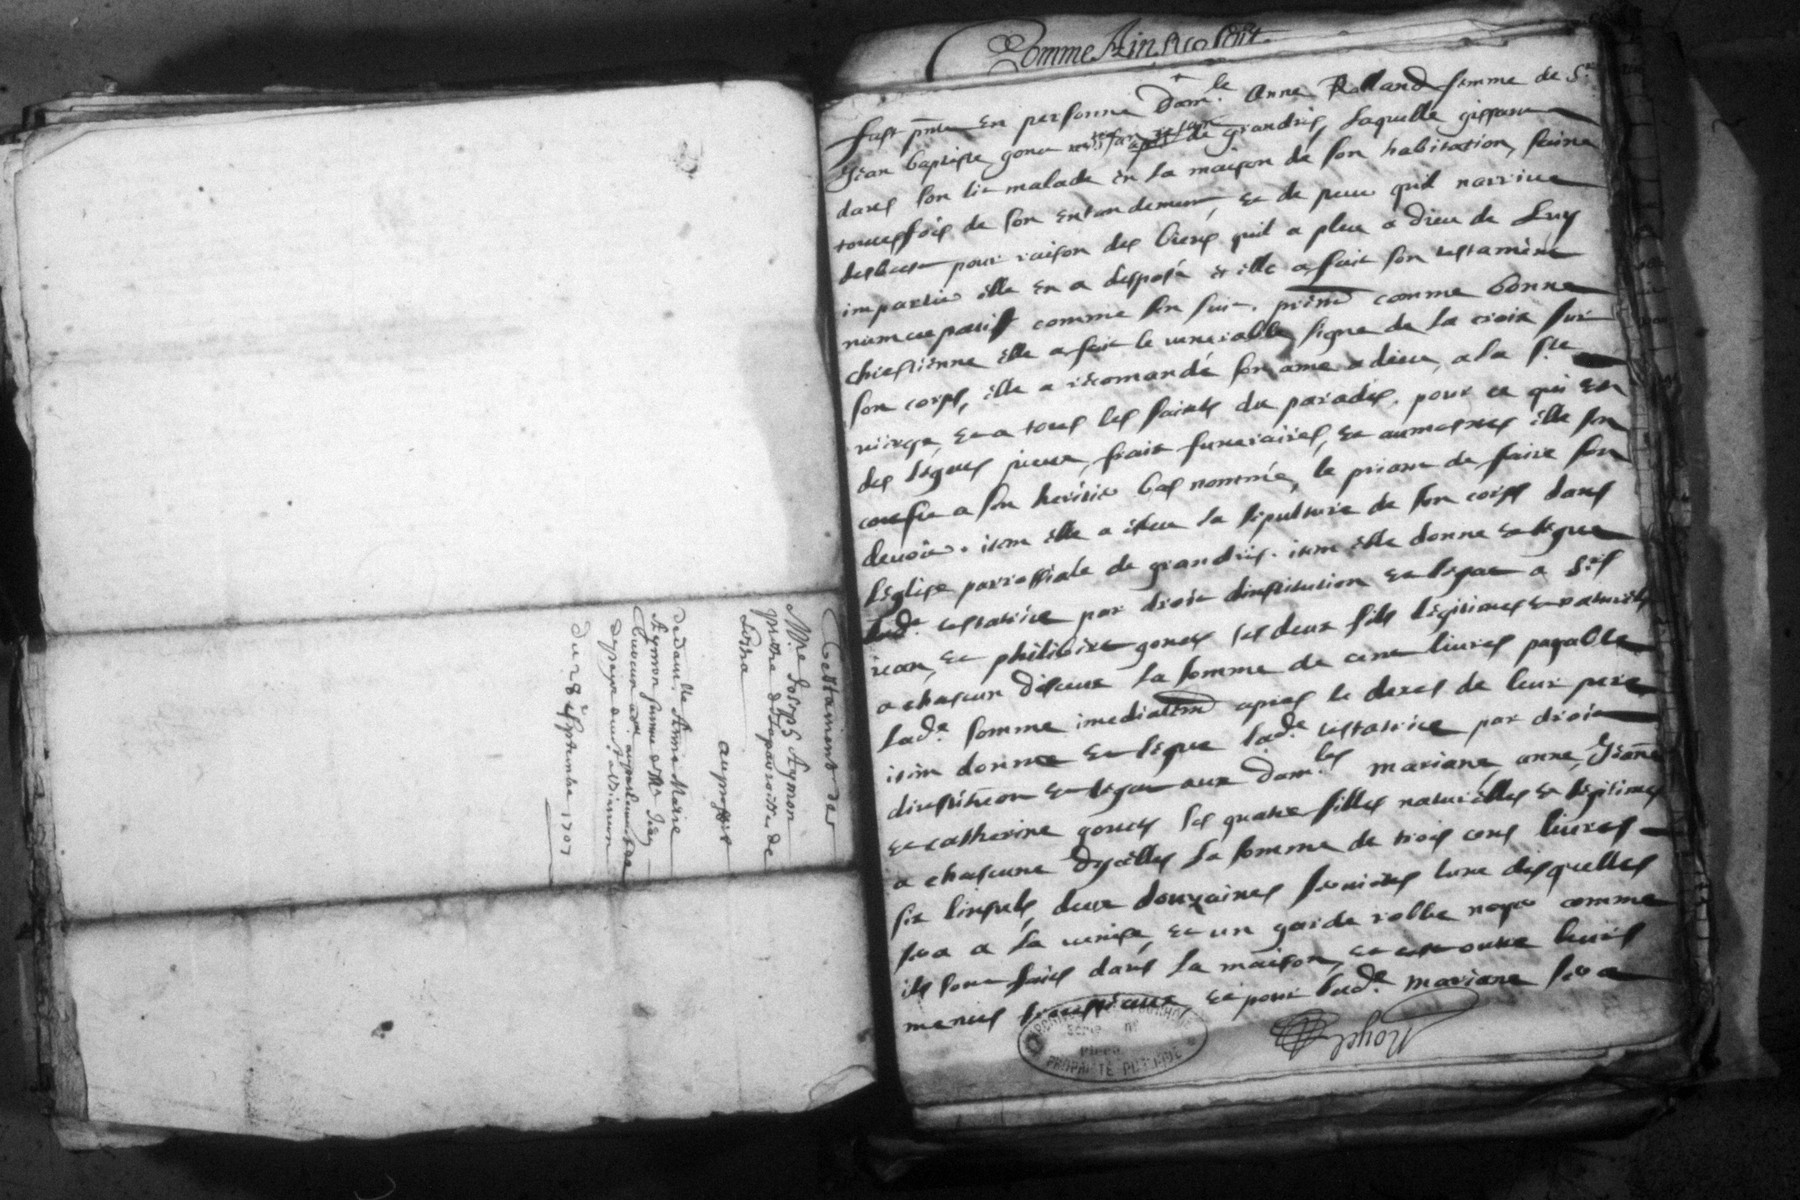 Testament de
Mre Joseph Aymon
prestre de la parroisse de
au proffit
de dam.lle Anne Marie
Aymon femme de Mr Jean
du 28e septembre 1707
Comme Ainsy soit
fust pnte en personne Dam.le Anne Rolland femme de Sr.
Jean baptiste gonet de grandris, laquelle gissant
dans son lit malade en la maison de son habitation, saine
toutesfois de son entandement, et de peur quil narrive
desbact pour raison des biens quil a pleu a dieu de Luy
impartir elle en a disposé et elle a fait son testament
nuncupatif comme sen suit. prem. comme bonne
chrestienne elle a fait le venerable signe de la croix sur
son corps, elle a recomandé son ame a dieu, a la ste
vierge, et a tous les saints du paradis. pour ce qui est
des légats pieux, frais funeraires, et aumosnes elle son
confie a son heritier bas nommé, le priant de faire son
devoir. item elle a esleu la sépulture de son corps dans
léglise parrossiale de grandris. item elle donne et légue
lad.e testatrice par droit dinstitution et légat a Srs
jean, et philibert gonet ses deux fils légitimes et naturels
a chascun diceux la somme de cent livres payable
lad.e somme imediatem apres le deces de leur pere
item donne et légue lad.e testatrice par droit
dinstitüon et légat aux dam.les mariane anne, Jeanne
et catherine gonet ses quatre filles naturelles et légitimes
a chascune dycelles la somme de trois cens livres
six linseuls, deux douzaines servietes lune desquelles
sera a la venise, et un garde robbe noyer comme
ils sont faits dans la maison, et outre leurs
menus trousseaux et pour lad.e mariane sera
Noyel
PROPRIETE PUBLIQUE